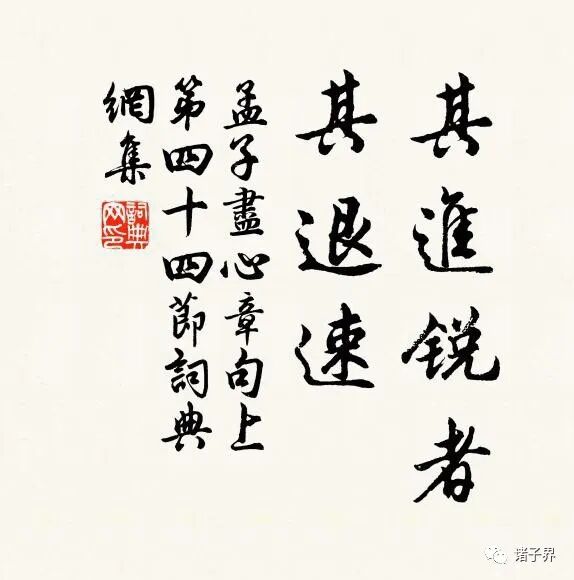 其進銳者
其退速
孟子盡心章句上
第四十四節詞典
網集
詞典
文印
诸子界